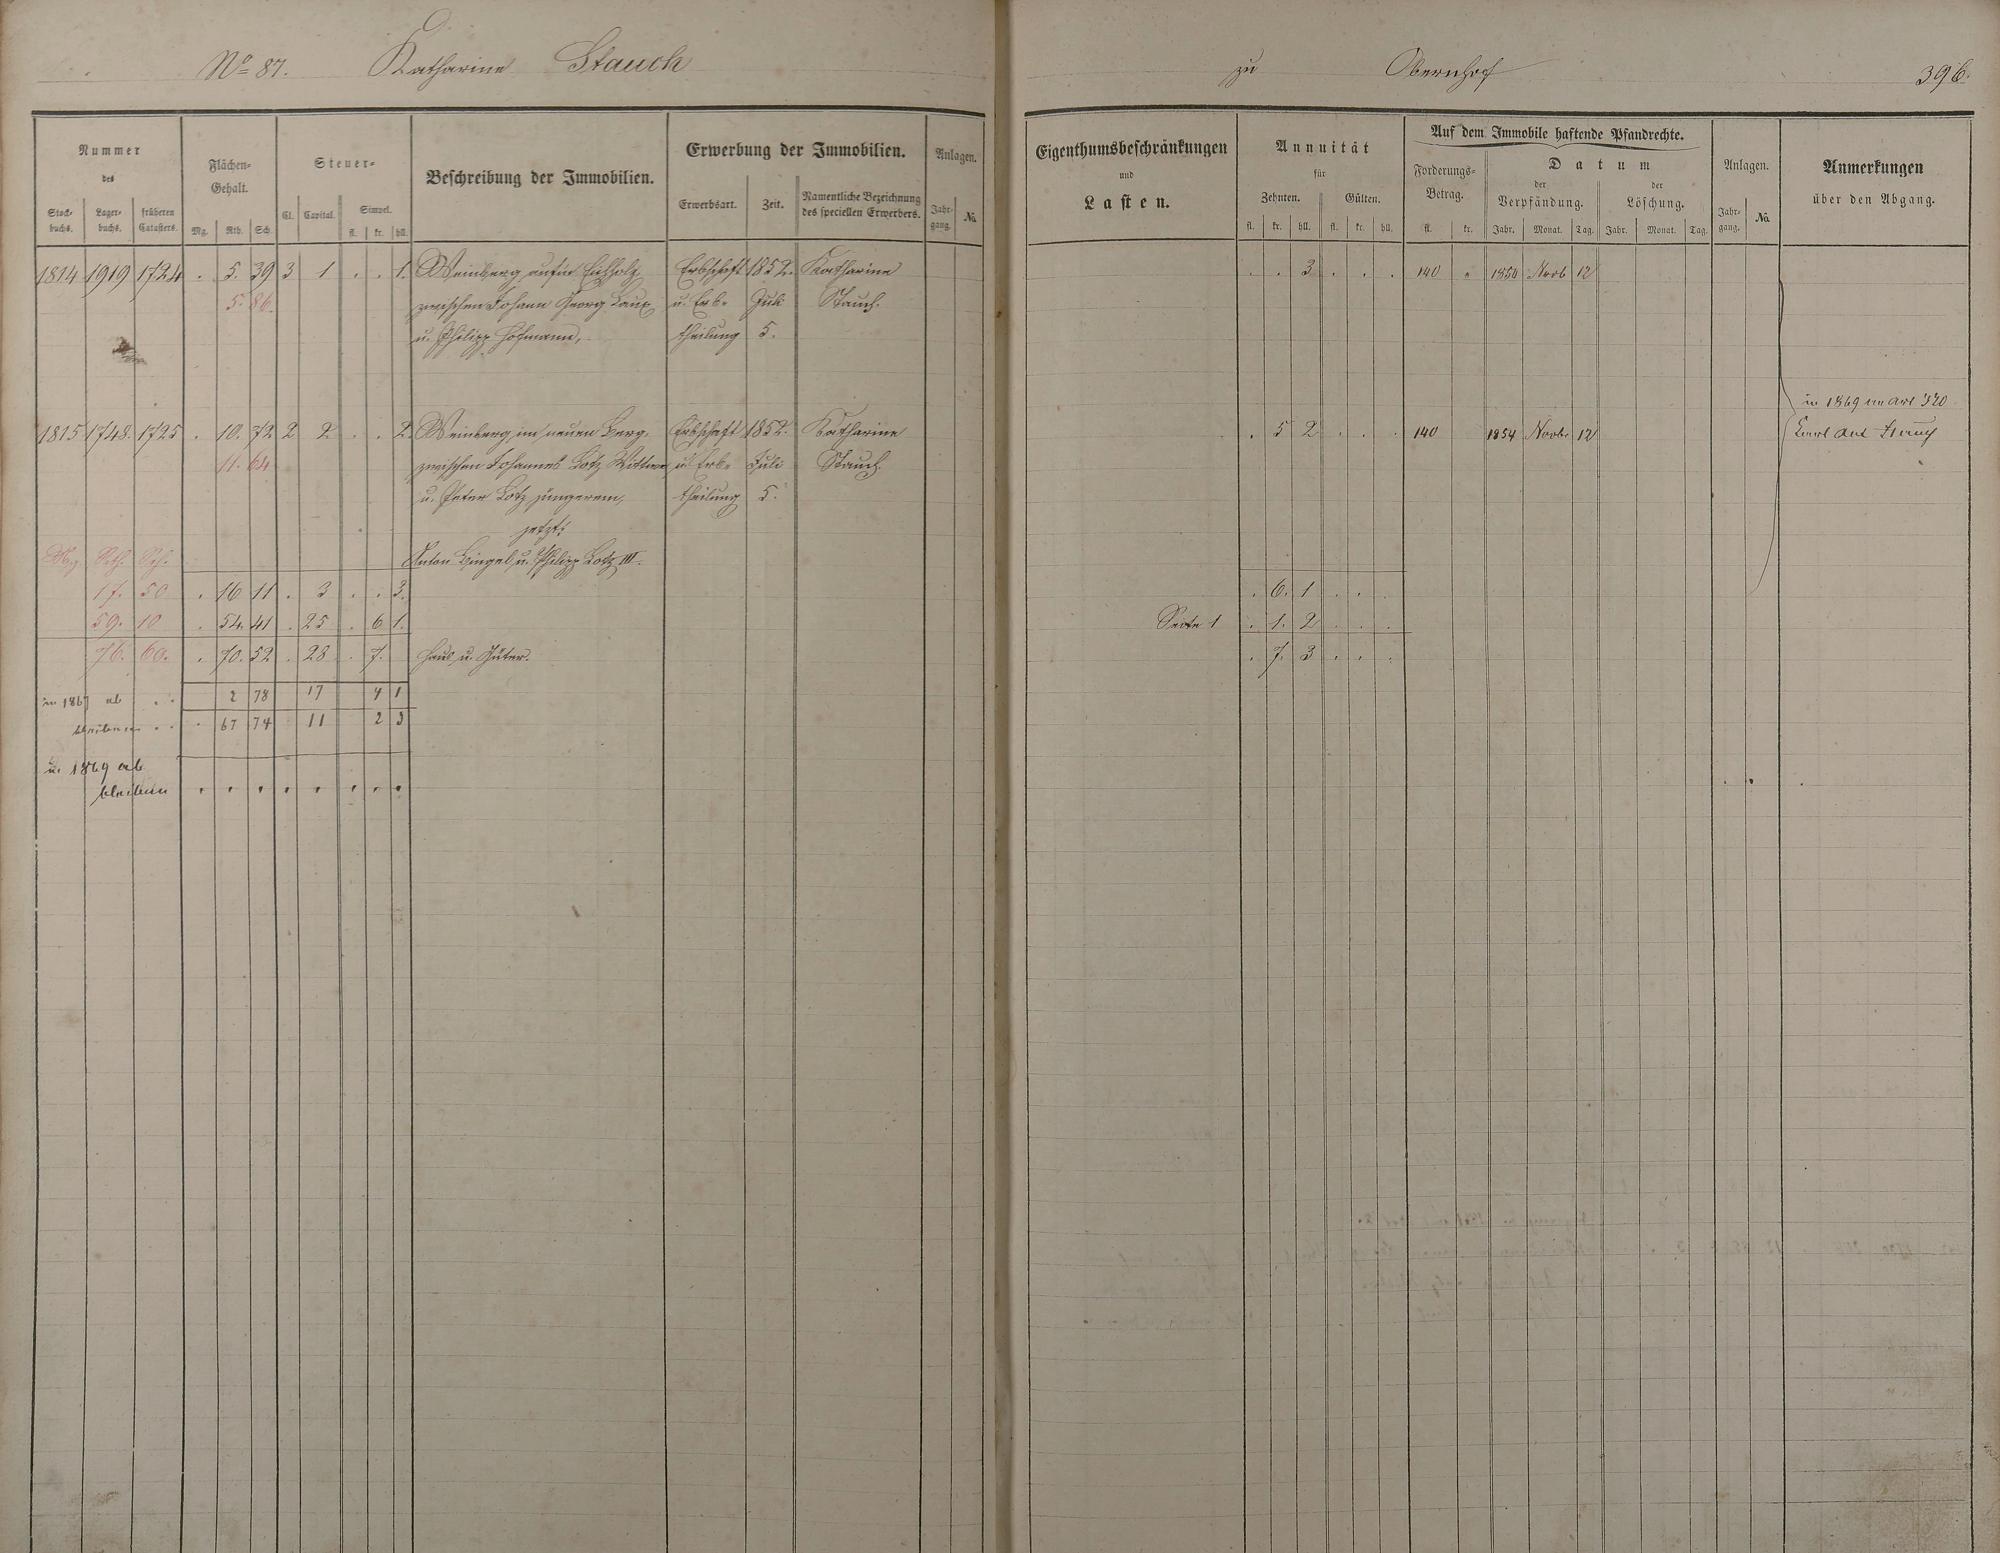 No 87. Katharine Stauch
zu Obernhof 396.
Nummer des
Stock-buchs. Lager-buchs. früheren Catasters.
Flächen-Gehalt.
Mg. Rth. Sch.
Steuer-
Cl. Capital. Simpel.
fl. kr. hll.
Beschreibung der Immobilien.
Erwerbung der Immobilien.
Erwerbsart. Zeit. Namentliche Bezeichnung des speciellen Erwerbers.
Anlagen.
Jahr-gang. No.
Eigenthumsbeschränkungen
und
Lasten.
Annuität
für
Zehnten. Gülten.
fl. kr. hll. fl. kr. hll.
Auf dem Immobile haftende Pfandrechte.
Forderungs-Betrag.
fl. kr.
Datum
der Verpfändung. der Löschung.
Jahr. Monat. Tag. Jahr. Monat. Tag.
Anlagen.
Jahr-gang. No.
Anmerkungen
über den Abgang.
1814 1919 1724 . 5. 39 3 1 . . 1. Weinberg aufm Eichholz Erbschaft 1852. Katharine . . 3 . . . 140 " 1854 Novb 12
5. 86. zwischen Johann Georg Laux u. Erb- Juli Stauch.
u. Philipp Hofmann, theilung 5.
in 1869 in Art 320
1815 1748. 1725 . 10. 72 2 2 . . 2. Weinberg im neuen Berg, Erbschaft 1852. Katharine . 5 2 . . . 140 1854 Novb. 12
11. 64 zwischen Johannes Lotz Wittwe u. Erb- Juli Stauch.
u. Peter Lotz jüngerem, theilung 5.
jetzt:
Mg. Rth. Sch. Anton Bingel u. Philipp Lotz III.
17. 50 . 16 11 . 3 . . 3. . 6. 1 . . .
59. 10 . 54. 41 . 25 . 6 1. Seite 1 . 1. 2 . . .
76. 60. . 70. 52 . 28 . 7. Haus u. Güter. . 7. 3 . . .
in 1867 ab . . 2 78 17 4 1
bleiben . . . 67 74 11 2 3
in 1869 ab
bleiben . . . . . . . .